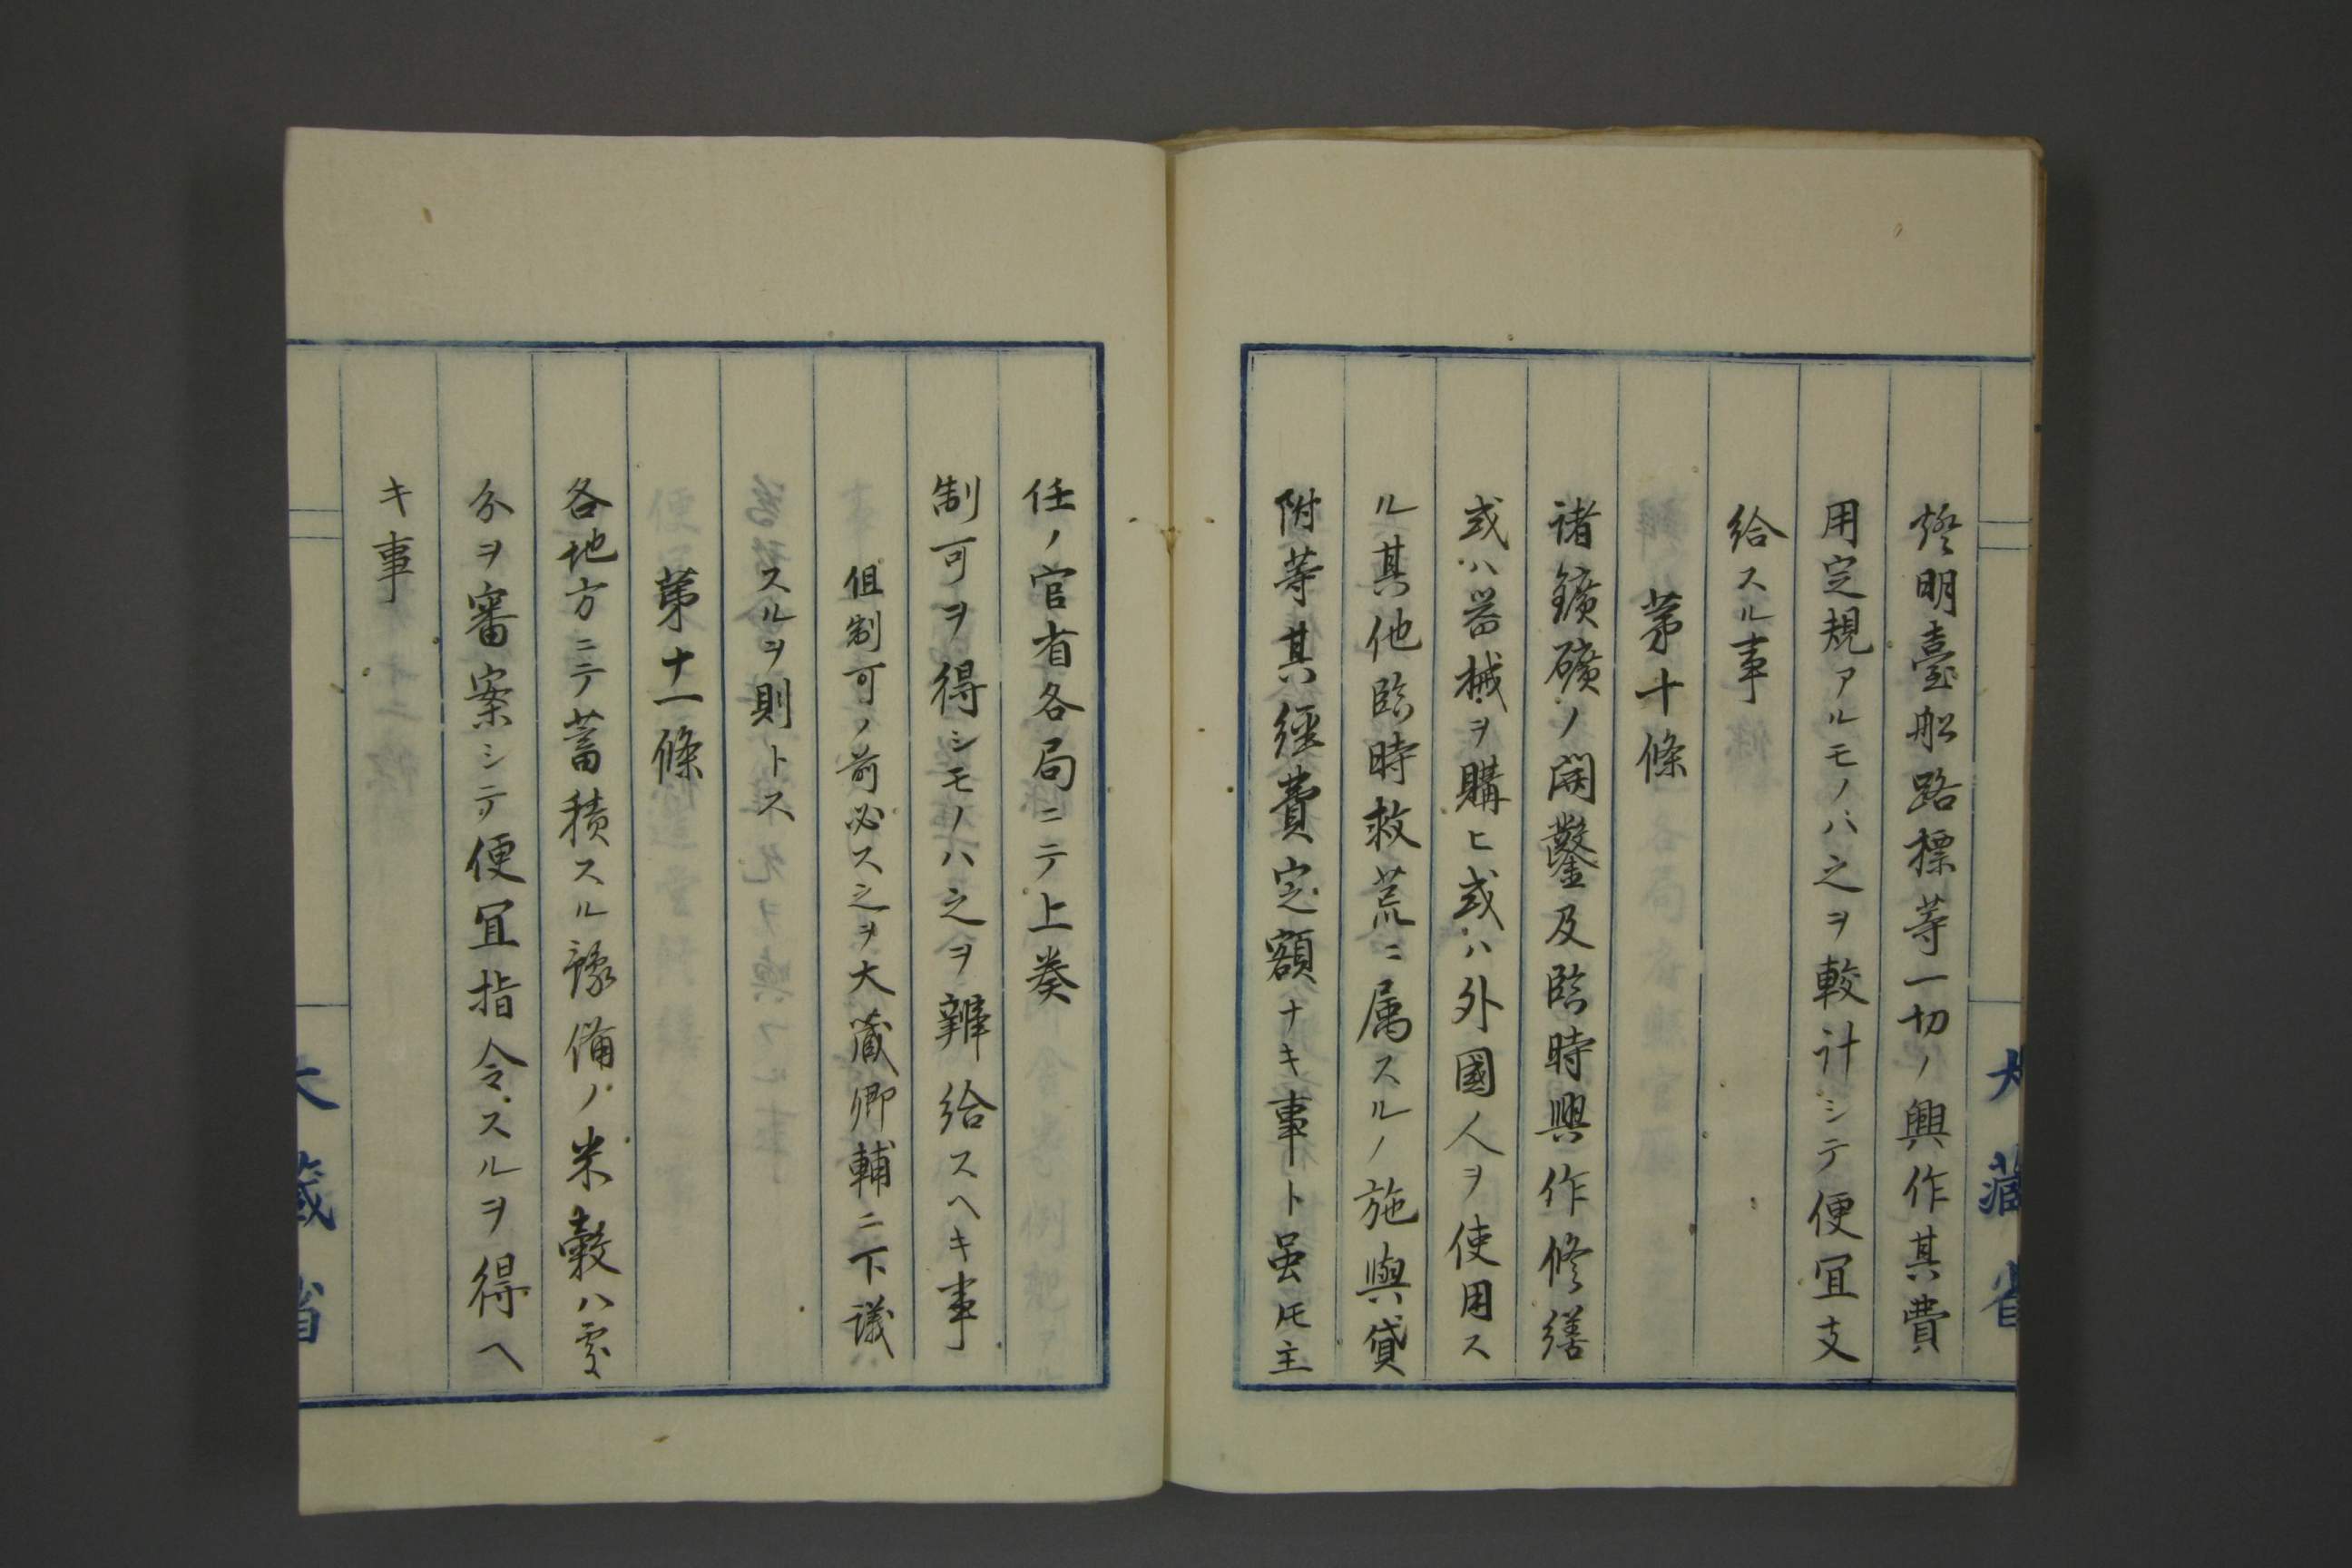 燈明臺船路標等一切ノ興作其費
用定規アルモノハ之ヲ較計シテ便宜支
給スル事
第十條
諸鑛礦ノ開鑿及臨時興作修繕
或ハ器械ヲ購ヒ或ハ外國人ヲ使用ス
ル其他臨時救荒ニ属スルノ施與貸
附等其經費定額ナキ事ト虽𪜈主
任ノ官省各局ニテ上奏
制可ヲ得シモノハ之ヲ辨給スヘキ事
但制可ノ前必ス之ヲ大藏卿輔ニ下議
スルヲ則トス
第十一條
各地方ニテ蓄積スル豫備ノ米穀ハ處
分ヲ審案シテ便宜指令スルヲ得ヘ
キ事
大藏省
大藏省